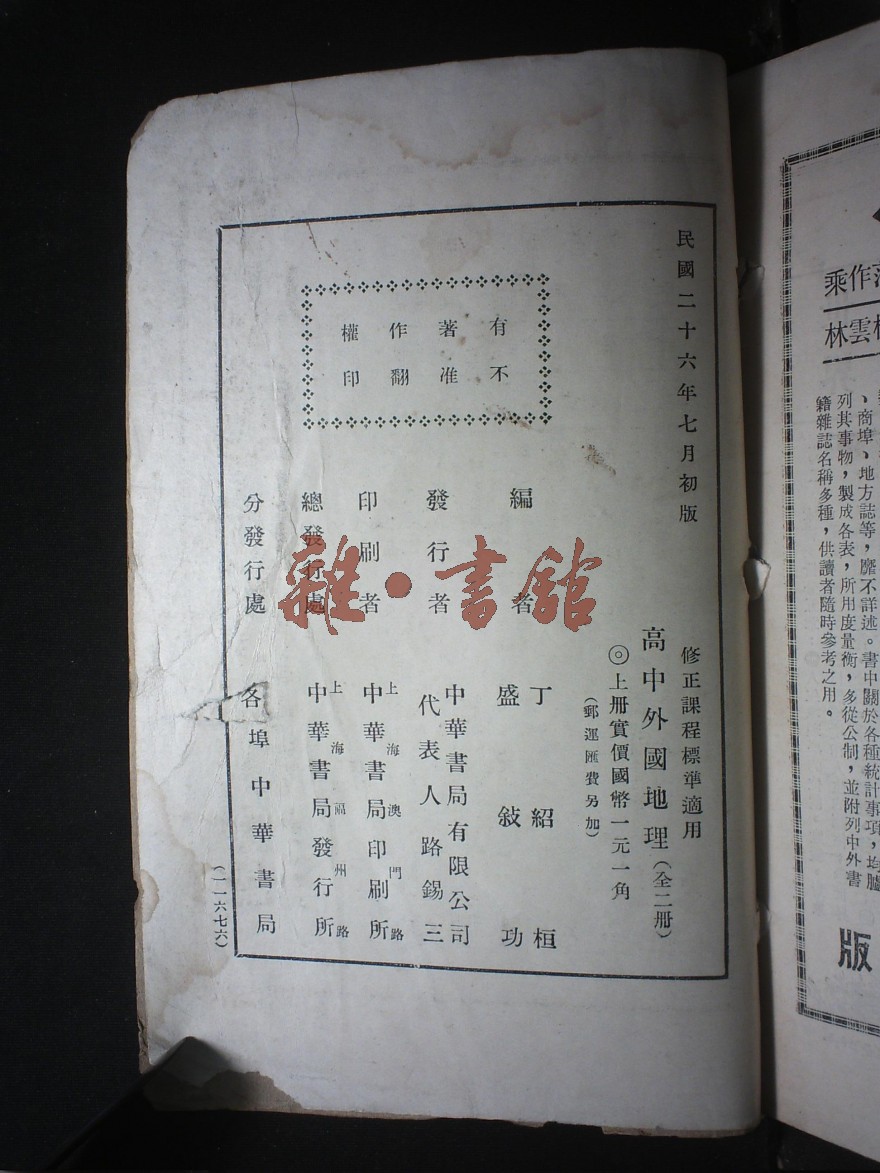 民國二十六年七月初版
修正課程標準適用
高中外國地理（全二册）
◎上册實價國幣一元一角
（郵運匯費另加）
有著作權
不准翻印
編者
丁紹桓
盛敍功
發行者
中華書局有限公司
代表人路錫三
印刷者
上海澳門路
中華書局印刷所
總發行處
上海福州路
中華書局發行所
分發行處
各埠中華書局
（一一六七六）
雜·書館
乘作
林雲
、商埠、地方誌等，靡不詳述。書中關於各種統計事項，均臚
列其事物，製成各表，所用度量衡，多從公制，並附列中外書
籍雜誌名稱多種，供讀者隨時參考之用。
版